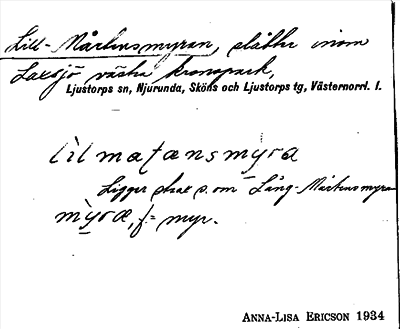 Lill-Mårtensmyran, slåtter inom
Laxsjö västra kronopark,
Ljustorps sn, Njurunda, Sköns och Ljustorps tg, Västernorrl. l.
lìlmaʈænsmy̠ra
Ligger strax s. om Lång-Mårtensmyran
mỳ̠ræ, f. = myr.
ANNA-LISA ERICSON 1934